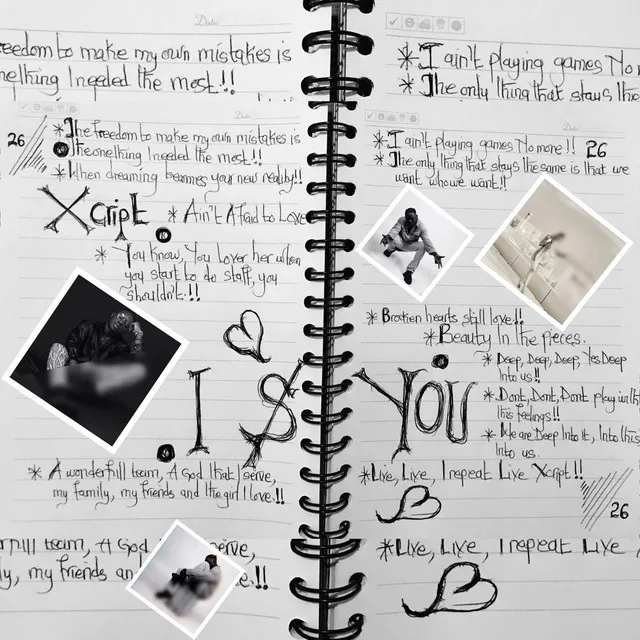 eedom to make my own mistakes is
nething I needed the most!!
*The freedom to make my own mistakes is
26
the onething I needed the most.!!
*When dreaming becomes your new reality!!
Xcript *Ain't Afraid to Love
* You know, You lover her when
you start to do staff, you
shouldn't.!!
.I $
* A wonderfull team, A God that I serve,
my family, my friends and the girl I love.!!
rfull team, A God I serve,
ly, my friends an e.!!
*I ain't playing games No mo
*The only thing that stays the
*I ain't playing games No more!! 26
*The only thing that stays the same is that we
want who we want.!!
*Broken hearts still love!!
*Beauty In the pieces.
*Deep, Deep, Deep, Yes Deep
Into us!!
YOU
*Dont, Dont, Dont play with
this feelings!!
*We are Deep Into it, Into this
Into us.
*Live, Live, I repeat Live Xcript!!
26
*Live, Live, I repeat Live